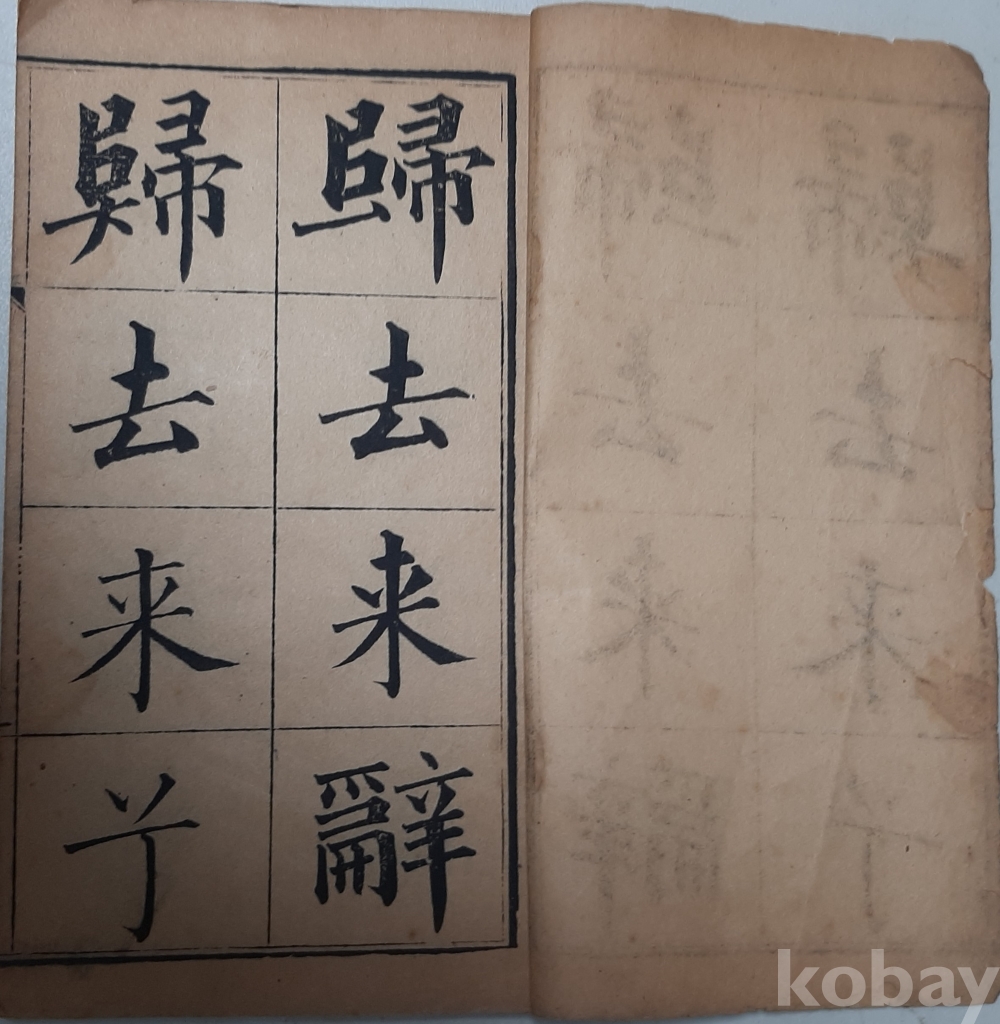 歸去来辭
歸去来兮
kobay